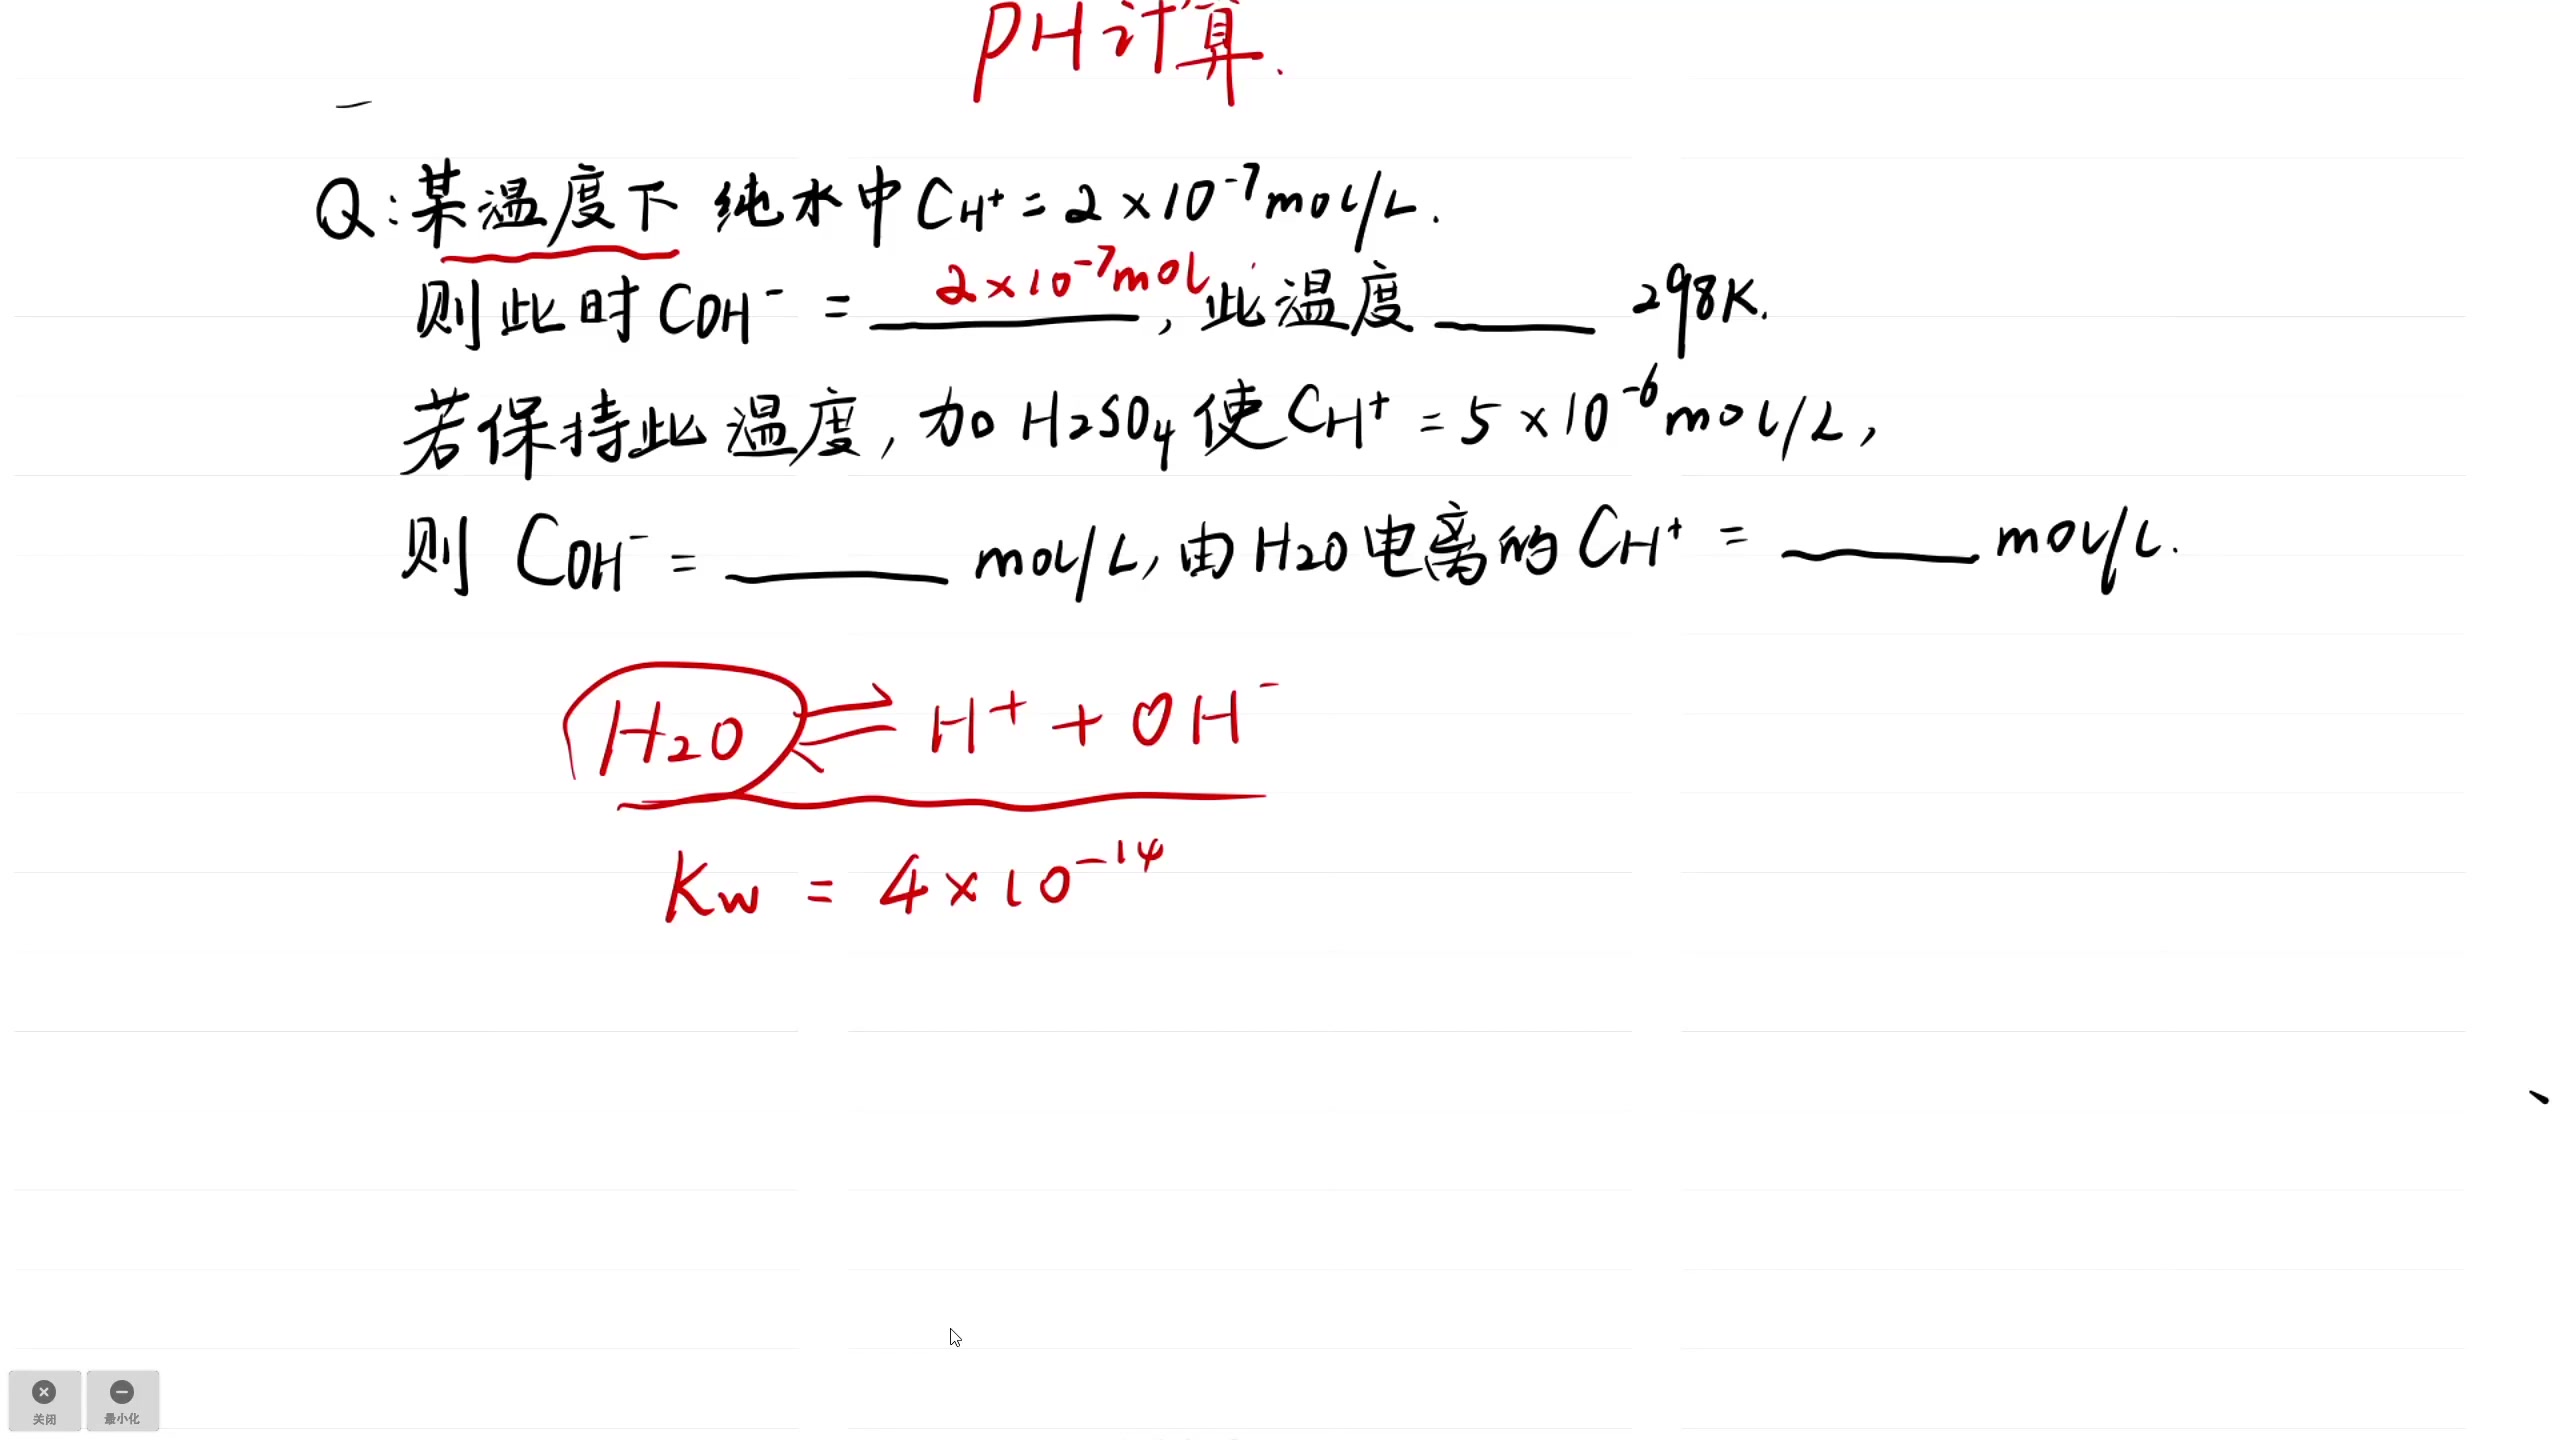 PH计算.
Q:某温度下 纯水中CH⁺=2×10⁻⁷mol/L.
则此时COH⁻=2×10⁻⁷mol,此温度____298K.
若保持此温度,加H2SO4使CH⁺=5×10⁻⁶mol/L,
则 COH⁻=____mol/L,由H2O电离的CH⁺=____mol/L.
H2O⇌H⁺+OH⁻
Kw=4×10⁻¹⁴
关闭 最小化